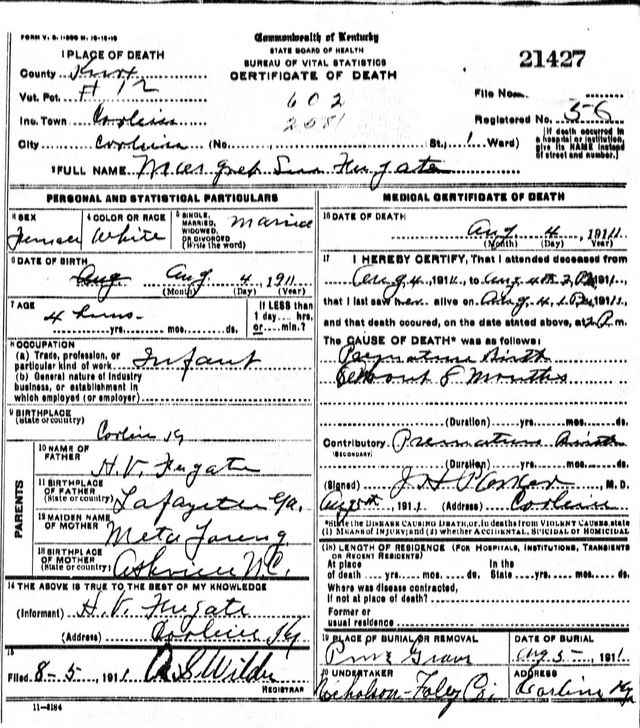 FORM V. S. 1-
Commonwealth of Kentucky
STATE BOARD OF HEALTH
BUREAU OF VITAL STATISTICS
CERTIFICATE OF DEATH
21427
1 PLACE OF DEATH
County Knox
Vot. Pct. # 12
Inc. Town Corbin
City Corbin (No. St., Ward)
602
2081
File No.
Registered No. 56
[If death occurred in a hospital or institution, give its NAME instead of street and number.]
2 FULL NAME Margret Fugate
PERSONAL AND STATISTICAL PARTICULARS
3 SEX
Female
4 COLOR OR RACE
White
5 SINGLE, MARRIED, WIDOWED, OR DIVORCED (Write the word)
Married
6 DATE OF BIRTH
Aug Aug 4, 1911
(Month) (Day) (Year)
7 AGE
4 hrs.
yrs. mos. ds.
If LESS than 1 day.... hrs. or.... min.?
8 OCCUPATION
(a) Trade, profession, or particular kind of work Infant
(b) General nature of industry business, or establishment in which employed (or employer)
9 BIRTHPLACE
(State or country)
Corbin Ky
PARENTS
10 NAME OF FATHER
H. V. Fugate
11 BIRTHPLACE OF FATHER
(State or country)
Lafayette Ga.
12 MAIDEN NAME OF MOTHER
Meta Young
13 BIRTHPLACE OF MOTHER
(State or country)
Ashville N.C.
14 THE ABOVE IS TRUE TO THE BEST OF MY KNOWLEDGE
(Informant) H. V. Fugate
(Address) Corbin Ky
15
Filed 8-5-, 1911 Wilder
REGISTRAR
11-8184
MEDICAL CERTIFICATE OF DEATH
16 DATE OF DEATH
Aug 4, 1911
(Month) (Day) (Year)
17 I HEREBY CERTIFY, That I attended deceased from
Aug 4, 1911, to Aug 4th 2 PM 1911,
that I last saw her alive on Aug 4, 1 PM, 1911,
and that death occured, on the date stated above, at 2 P.m.
The CAUSE OF DEATH* was as follows:
Premature Birth
About 8 Months
(Duration) yrs. mos. ds.
Contributory Premature Birth
(SECONDARY)
(Duration) yrs. mos. ds.
(Signed) J H Parker, M. D.
Aug 5th, 1911 (Address) Corbin
*State the DISEASE CAUSING DEATH, or, in deaths from VIOLENT CAUSES, state (1) MEANS of INJURY; and (2) whether ACCIDENTAL, SUICIDAL OR HOMICIDAL
18 LENGTH OF RESIDENCE (FOR HOSPITALS, INSTITUTIONS, TRANSIENTS OR RECENT RESIDENTS)
At place of death yrs. mos. ds. In the State yrs. mos. ds.
Where was disease contracted, if not at place of death?
Former or usual residence
19 PLACE OF BURIAL OR REMOVAL
Pine Grove
DATE OF BURIAL
Aug 5-, 1911
20 UNDERTAKER
Nicholson-Foley Co.
ADDRESS
Corbin Ky